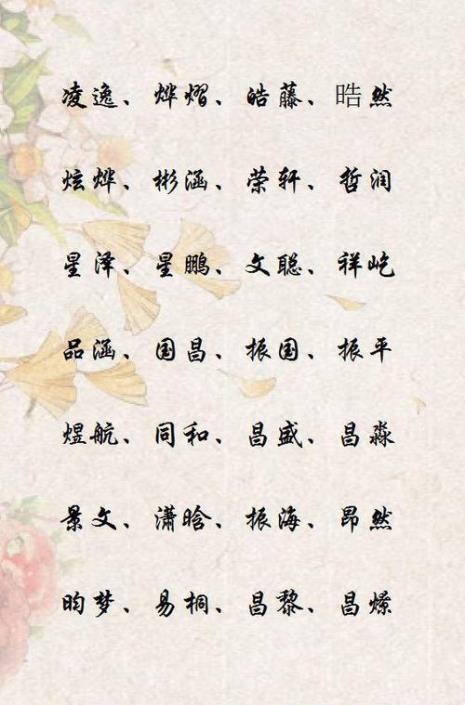 凌逸、烨熠、皓藤、晧然
炫烨、彬涵、荣轩、哲润
星泽、星鹏、文聪、祥屹
品涵、国昌、振国、振平
煜航、同和、昌盛、昌淼
景文、潇晗、振海、昂然
昀梦、易桐、昌黎、昌燎